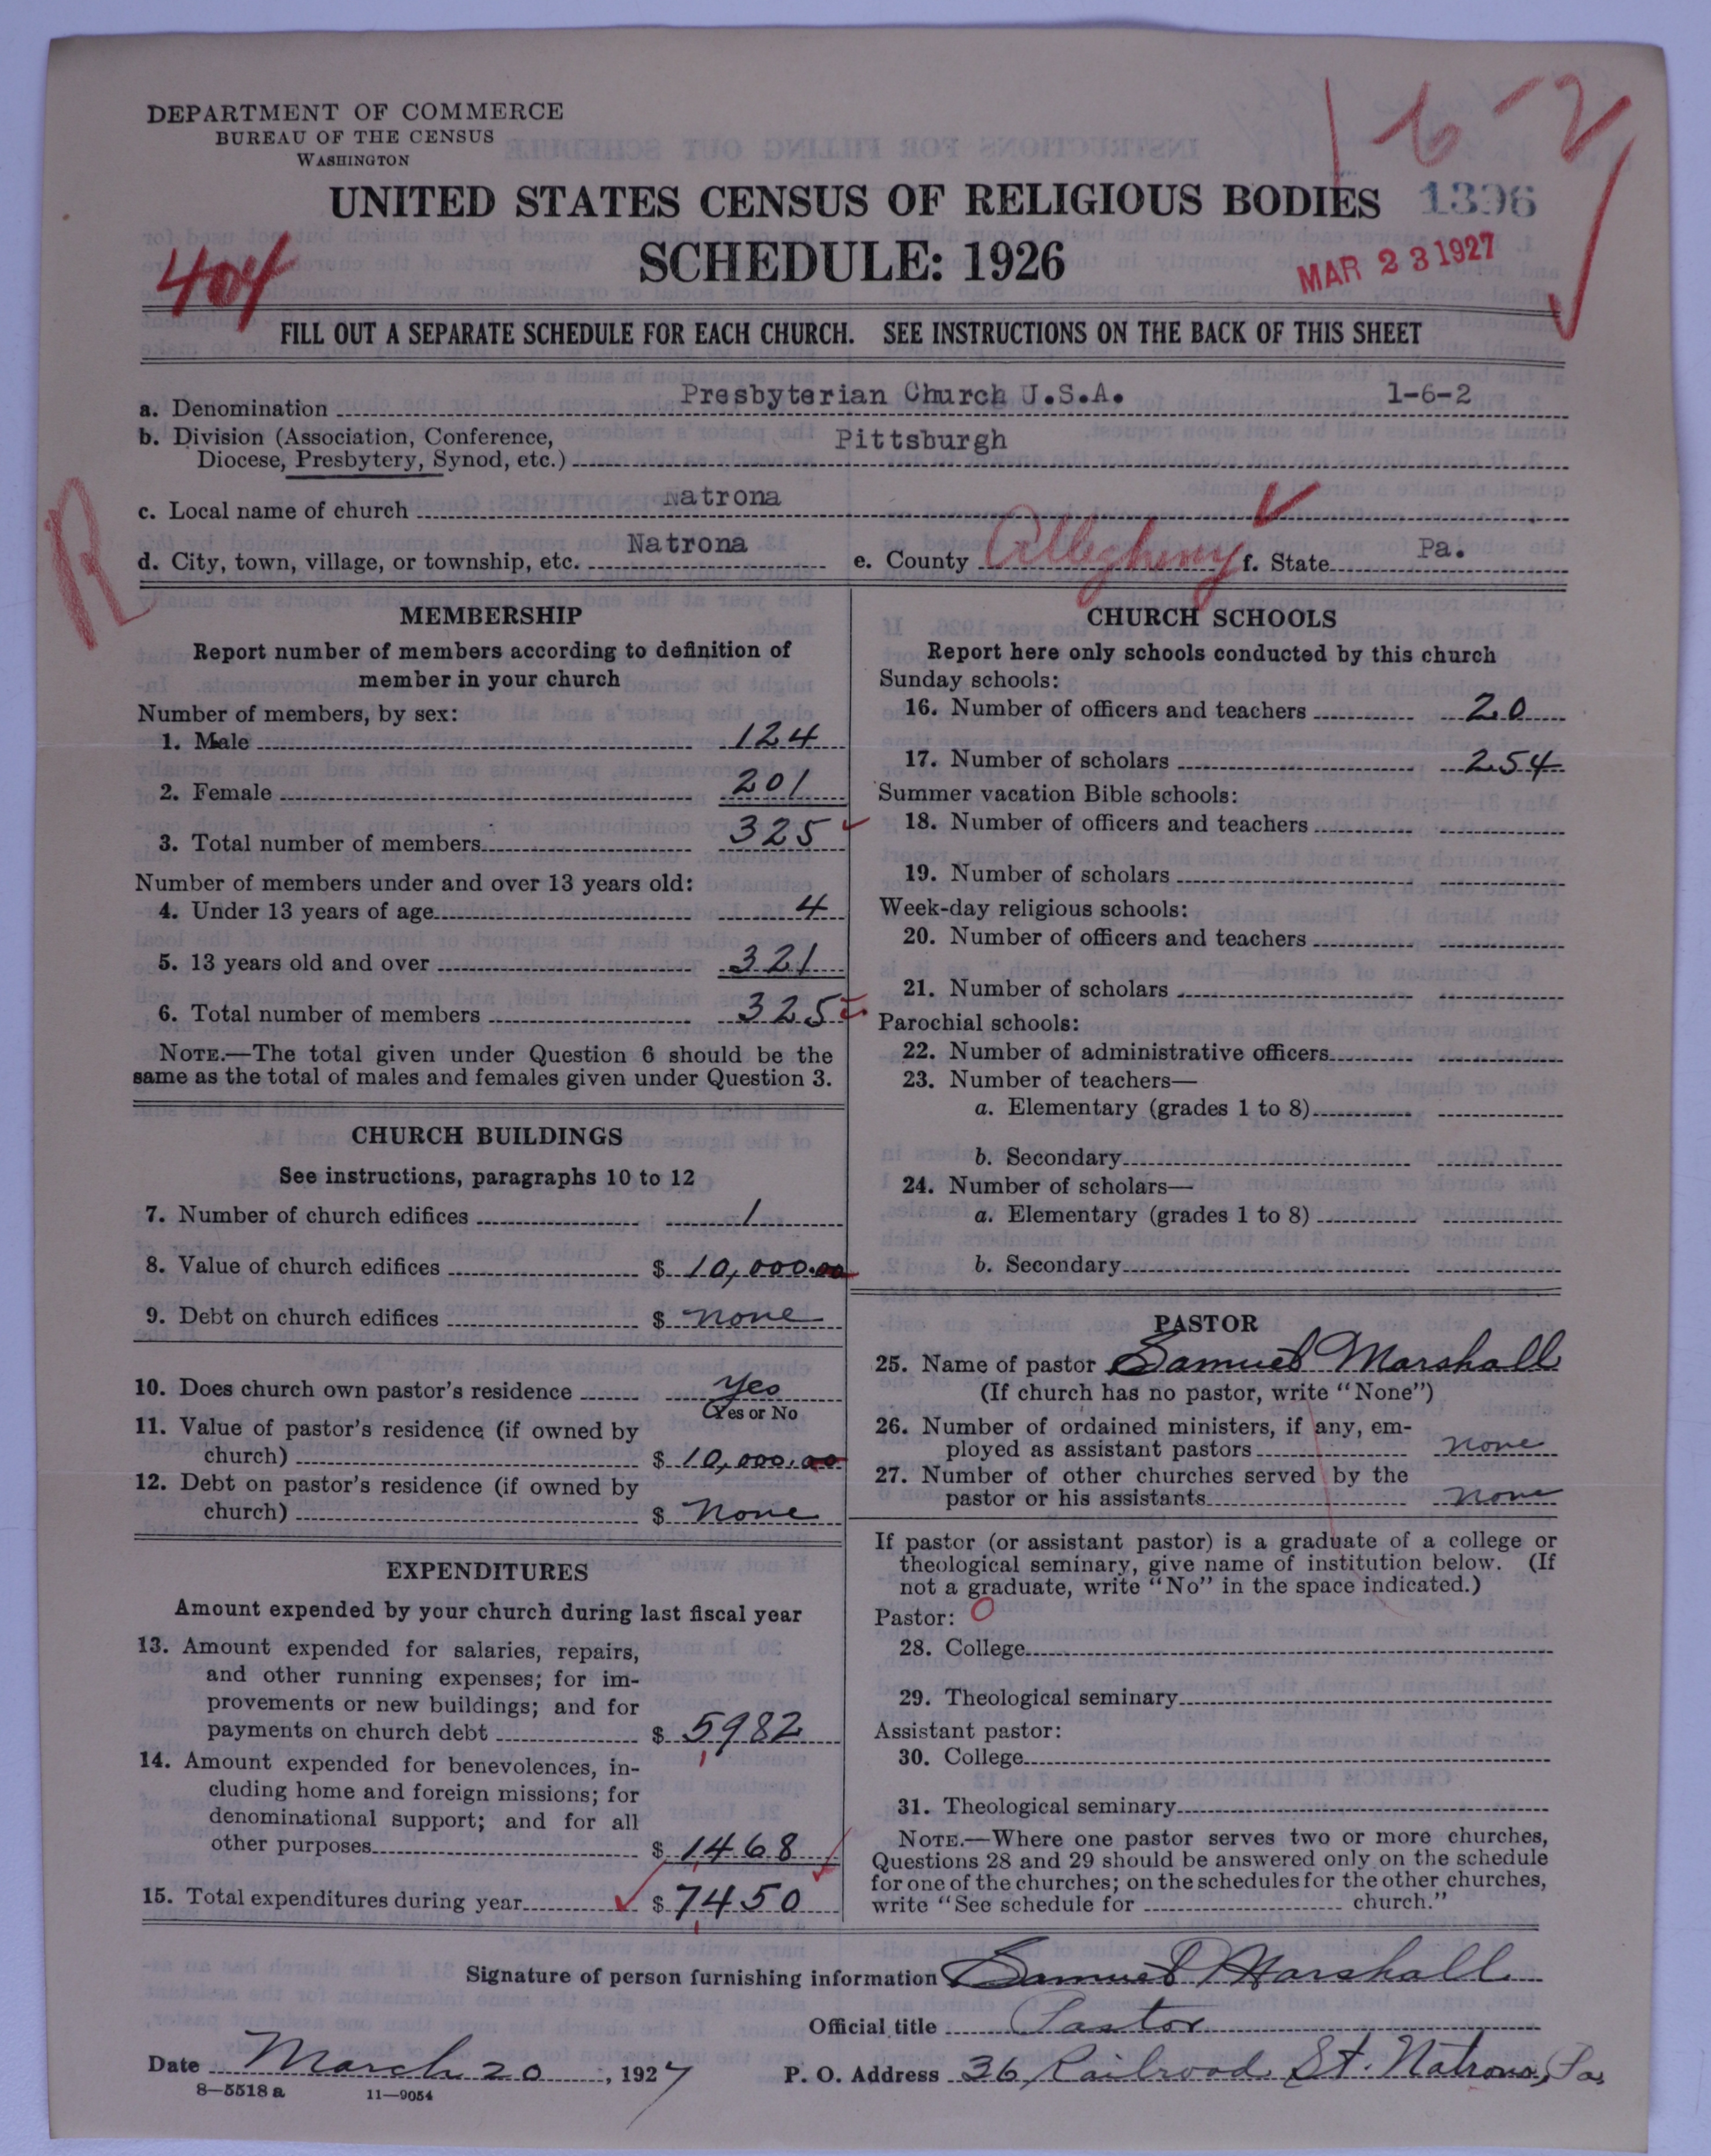 DEPARTMENT OF COMMERCE
BUREAU OF THE CENSUS
WASHINGTON
1-6-2
UNITED STATES CENSUS OF RELIGIOUS BODIES 1396
SCHEDULE: 1926
404
MAR 23 1927
FILL OUT A SEPARATE SCHEDULE FOR EACH CHURCH. SEE INSTRUCTIONS ON THE BACK OF THIS SHEET
a. Denomination Presbyterian Church U.S.A. 1-6-2
b. Division (Association, Conference, Diocese, Presbytery, Synod, etc.) Pittsburgh
R
c. Local name of church Natrona
d. City, town, village, or township, etc. Natrona e. County Allegheny f. State Pa.
MEMBERSHIP
Report number of members according to definition of
member in your church
Number of members, by sex:
1. Male 124
2. Female 201
3. Total number of members 325
Number of members under and over 13 years old:
4. Under 13 years of age 4
5. 13 years old and over 321
6. Total number of members 325
NOTE.—The total given under Question 6 should be the
same as the total of males and females given under Question 3.
CHURCH BUILDINGS
See instructions, paragraphs 10 to 12
7. Number of church edifices 1
8. Value of church edifices $ 10,000.00
9. Debt on church edifices $ none
10. Does church own pastor's residence yes
(Yes or No
11. Value of pastor's residence (if owned by
church) $ 10,000.00
12. Debt on pastor's residence (if owned by
church) $ None
EXPENDITURES
Amount expended by your church during last fiscal year
13. Amount expended for salaries, repairs,
and other running expenses; for im-
provements or new buildings; and for
payments on church debt $ 5982
14. Amount expended for benevolences, in-
cluding home and foreign missions; for
denominational support; and for all
other purposes $ 1468
15. Total expenditures during year $ 7450
CHURCH SCHOOLS
Report here only schools conducted by this church
Sunday schools:
16. Number of officers and teachers 20
17. Number of scholars 254
Summer vacation Bible schools:
18. Number of officers and teachers
19. Number of scholars
Week-day religious schools:
20. Number of officers and teachers
21. Number of scholars
Parochial schools:
22. Number of administrative officers
23. Number of teachers—
a. Elementary (grades 1 to 8)
b. Secondary
24. Number of scholars—
a. Elementary (grades 1 to 8)
b. Secondary
PASTOR
25. Name of pastor Samuel Marshall
(If church has no pastor, write "None")
26. Number of ordained ministers, if any, em-
ployed as assistant pastors none
27. Number of other churches served by the
pastor or his assistants none
If pastor (or assistant pastor) is a graduate of a college or
theological seminary, give name of institution below. (If
not a graduate, write "No" in the space indicated.)
Pastor: O
28. College
29. Theological seminary
Assistant pastor:
30. College
31. Theological seminary
NOTE.—Where one pastor serves two or more churches,
Questions 28 and 29 should be answered only on the schedule
for one of the churches; on the schedules for the other churches,
write "See schedule for church."
Signature of person furnishing information Samuel Marshall
Official title Pastor
Date March 20, 1927 P. O. Address 36 Railroad St. Natrona, Pa.
8—5518 a 11—9054